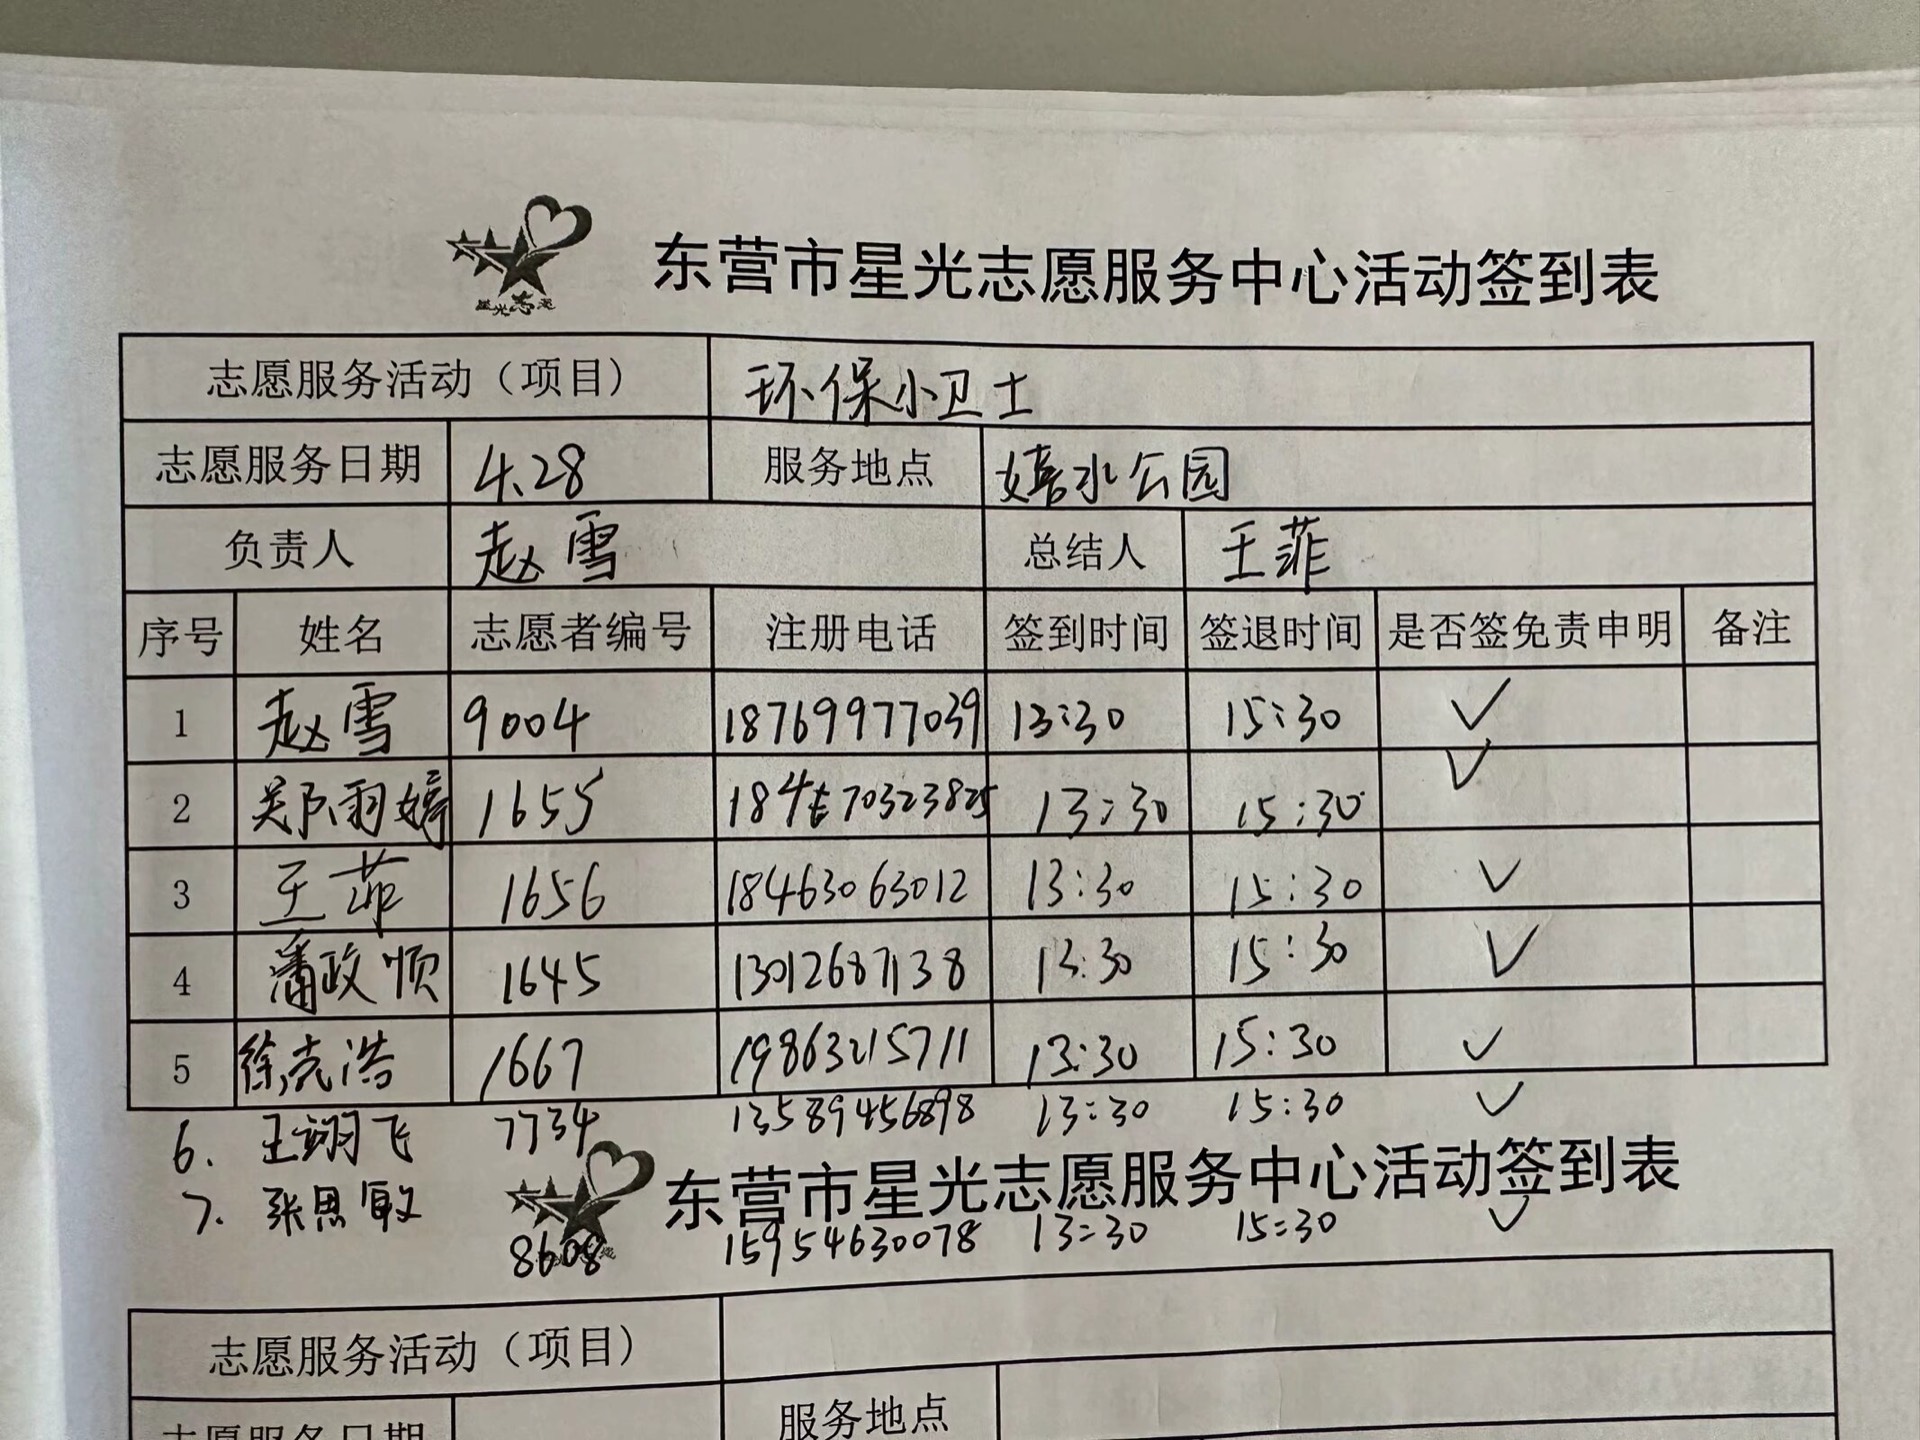 星光志愿
东营市星光志愿服务中心活动签到表
志愿服务活动（项目） 环保小卫士
志愿服务日期 4.28 服务地点 嬉水公园
负责人 赵雪 总结人 王菲
序号 姓名 志愿者编号 注册电话 签到时间 签退时间 是否签免责申明 备注
1 赵雪 9004 18769977039 13:30 15:30 ✓
2 雨婷 1655 13:30 15:30 ✓
3 王菲 1656 18463063012 13:30 15:30 ✓
4 潘政顺 1645 13012687138 13:30 15:30 ✓
5 徐克浩 1667 19863215711 13:30 15:30 ✓
6. 王翊飞 7734 13589456898 13:30 15:30 ✓
东营市星光志愿服务中心活动签到表
7. 张思敏 8608 15954630078 13:30 15:30 ✓
志愿服务活动（项目）
志愿服务日期 服务地点